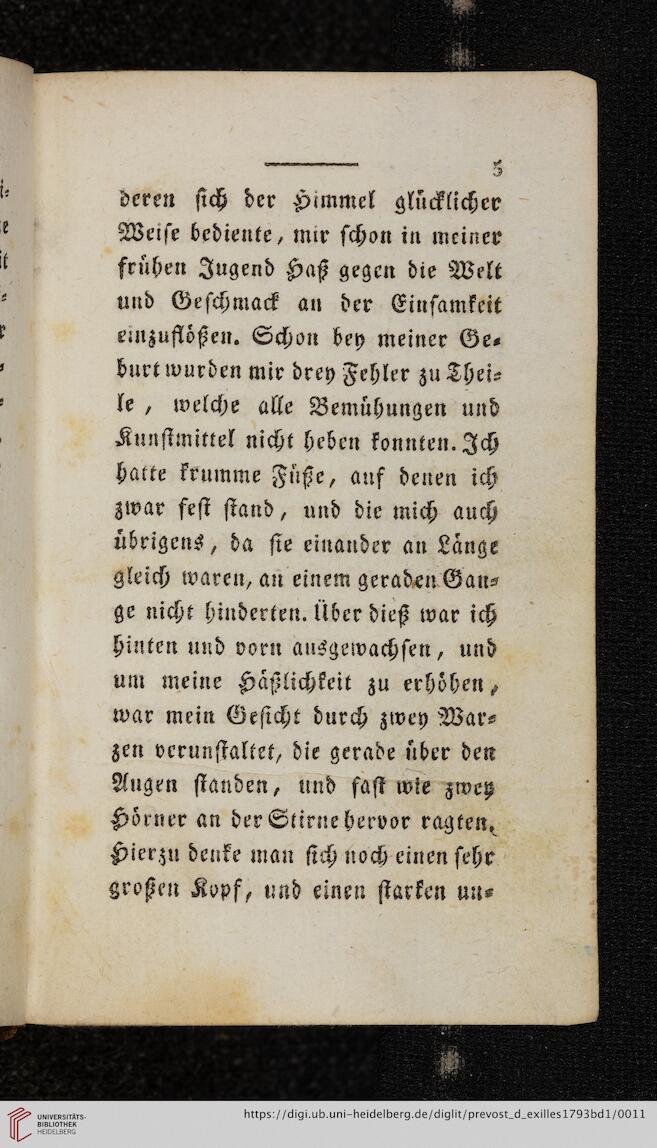 5
deren sich der Himmel glücklicher
Weise bediente, mir schon in meiner
frühen Jugend Haß gegen die Welt
und Geschmack an der Einsamkeit
einzuflößen. Schon bey meiner Ge-
burt wurden mir drey Fehler zu Thei-
le, welche alle Bemühungen und
Kunstmittel nicht heben konnten. Ich
hatte krumme Füße, auf denen ich
zwar fest stand, und die mich auch
übrigens, da sie einander an Länge
gleich waren, an einem geraden Gan-
ge nicht hinderten. Über dieß war ich
hinten und vorn ausgewachsen, und
um meine Häßlichkeit zu erhöhen,
war mein Gesicht durch zwey War-
zen verunstaltet, die gerade über den
Augen standen, und fast wie zwey
Hörner an der Stirne hervor ragten.
Hierzu denke man sich noch einen sehr
großen Kopf, und einen starken un-
UNIVERSITÄTS-
BIBLIOTHEK
HEIDELBERG
https://digi.ub.uni-heidelberg.de/diglit/prevost_d_exilles1793bd1/0011